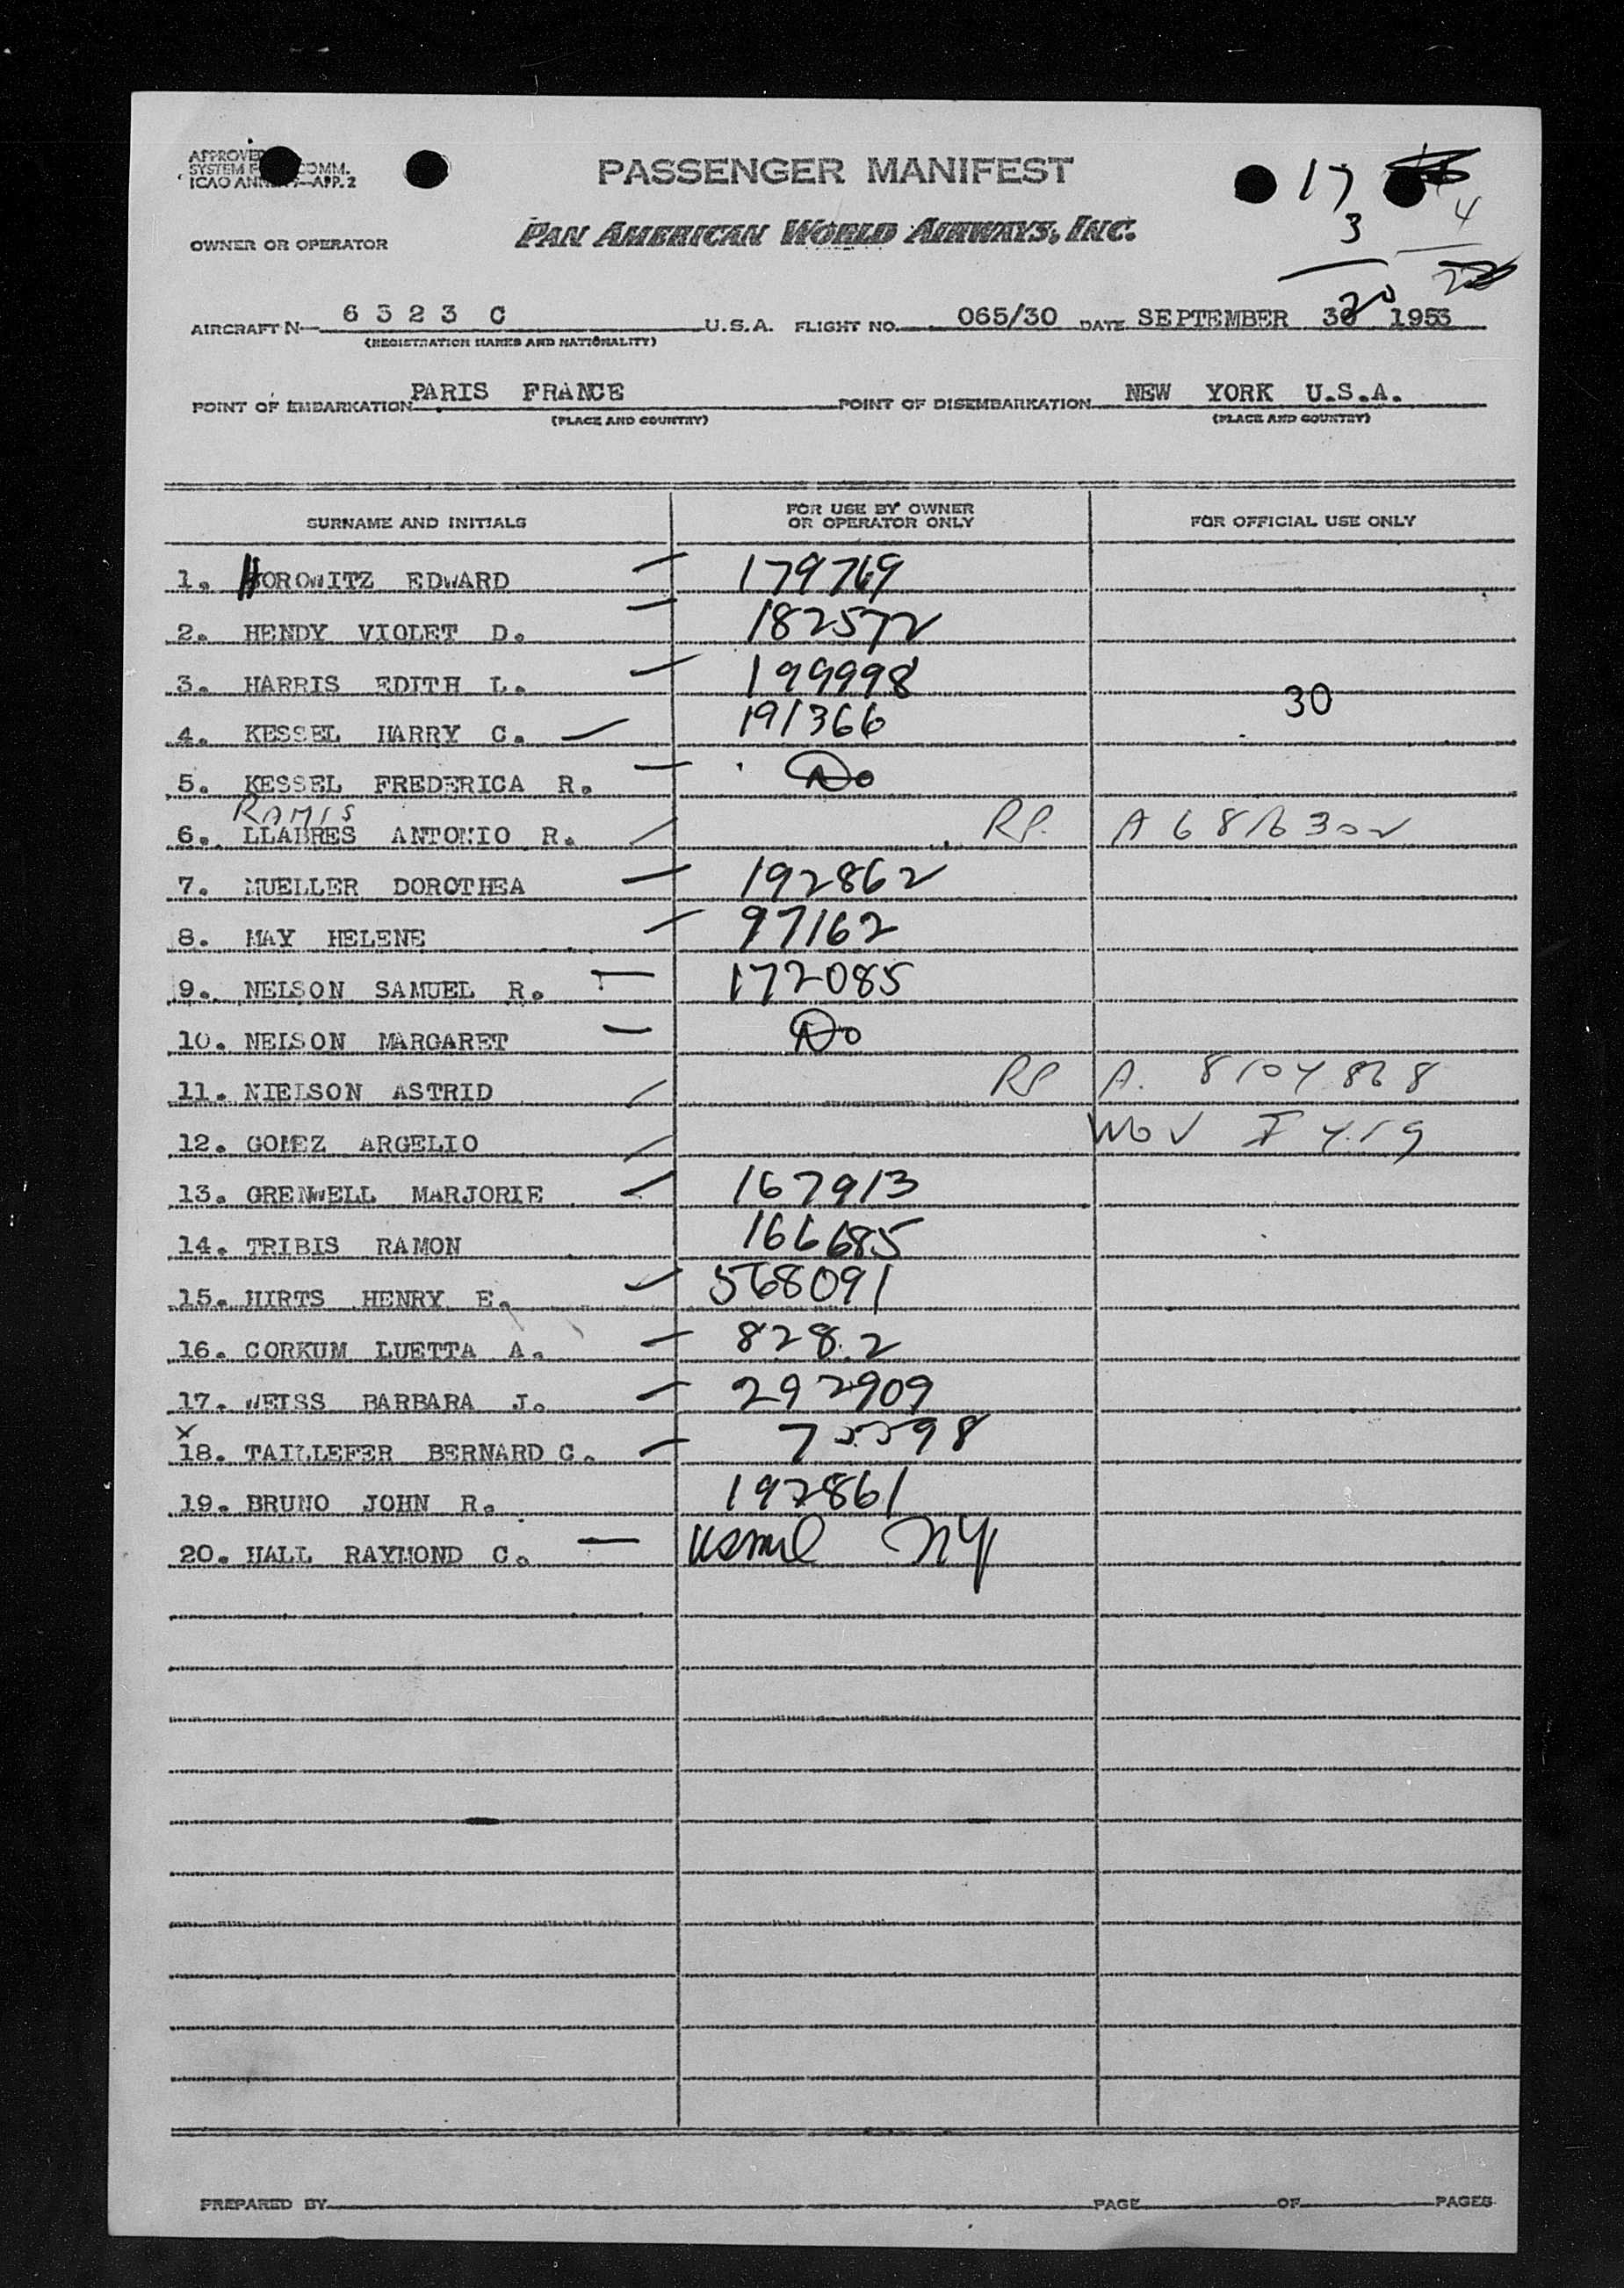 APPROVED
SYSTEM F COMM.
ICAO ANNEX —APP. 2
PASSENGER MANIFEST
17
4
3
20
OWNER OR OPERATOR PAN AMERICAN WORLD AIRWAYS, INC.
AIRCRAFT N— 6 5 2 3 C U.S.A. FLIGHT NO. 065/30 DATE SEPTEMBER 30 1953
(REGISTRATION MARKS AND NATIONALITY)
POINT OF EMBARKATION PARIS FRANCE POINT OF DISEMBARKATION NEW YORK U.S.A.
(PLACE AND COUNTRY) (PLACE AND COUNTRY)
SURNAME AND INITIALS FOR USE BY OWNER OR OPERATOR ONLY FOR OFFICIAL USE ONLY
1. HOROWITZ EDWARD — 179769
2. HENDY VIOLET D. — 182572
3. HARRIS EDITH L. — 199998
30
4. KESSEL HARRY C. — 191366
5. KESSEL FREDERICA R. — Do
RAMIS
6. LLABRES ANTONIO R. / RP. A 6816302
7. MUELLER DOROTHEA — 192862
8. MAY HELENE — 97162
9. NELSON SAMUEL R. — 172085
10. NELSON MARGARET — Do
11. NIELSON ASTRID / RP A. 8104868
12. GOMEZ ARGELIO /
13. GRENWELL MARJORIE — 167913
14. TRIBIS RAMON 166685
15. HIRTS HENRY E. — 568091
16. CORKUM LUETTA A. — 828.2
17. WEISS BARBARA J. — 292909
x
18. TAILLEFER BERNARD C. — 75598
19. BRUNO JOHN R. 192861
20. HALL RAYMOND C. — NY
PREPARED BY PAGE OF PAGES